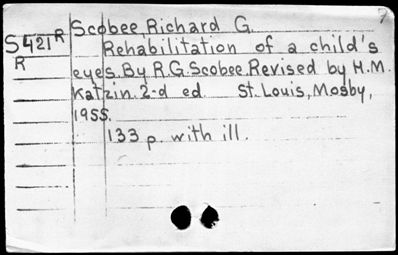 Scobee, Richard G.
S421R
Rehabilitation of a child's
R
eyes. By R.G. Scobee. Revised by H.M.
Katzin. 2-d ed St. Louis, Mosby,
1955.
133 p. with ill.